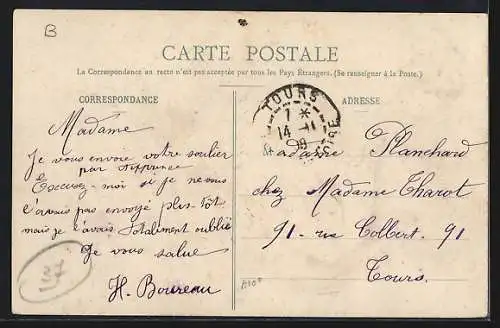 B
CARTE POSTALE
La Correspondance au recto n'est pas acceptée par tous les Pays Étrangers. (Se renseigner à la Poste.)
CORRESPONDANCE
ADRESSE
TOURS
7 *
14 - 11
09
LOIRE
Madame
Je vous envoie votre soulier
par
Excusez-moi si je ne vous
l'avais pas envoyé plus tôt
mais je l'avais totalement oublié
Je vous salue
H. Boureau
Madame Planchard
chez Madame Tharot
91 - rue Colbert. 91
Tours.